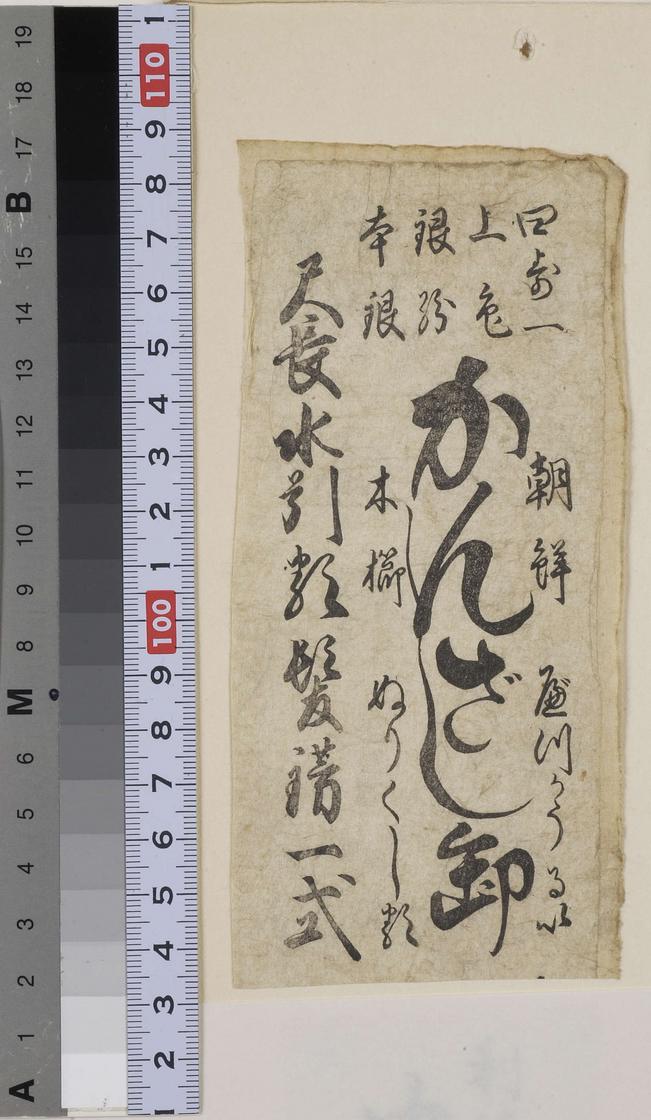 四分一
朝鮮
上色
銀流
本銀
かんざし卸
木櫛
ぬりくし類
尺長水引類髪 一式
A 1 2 3 4 5 6 M 8 9 10 11 12 13 14 15 B 17 18 19
2 3 4 5 6 7 8 9 100 1 2 3 4 5 6 7 8 9 110 1